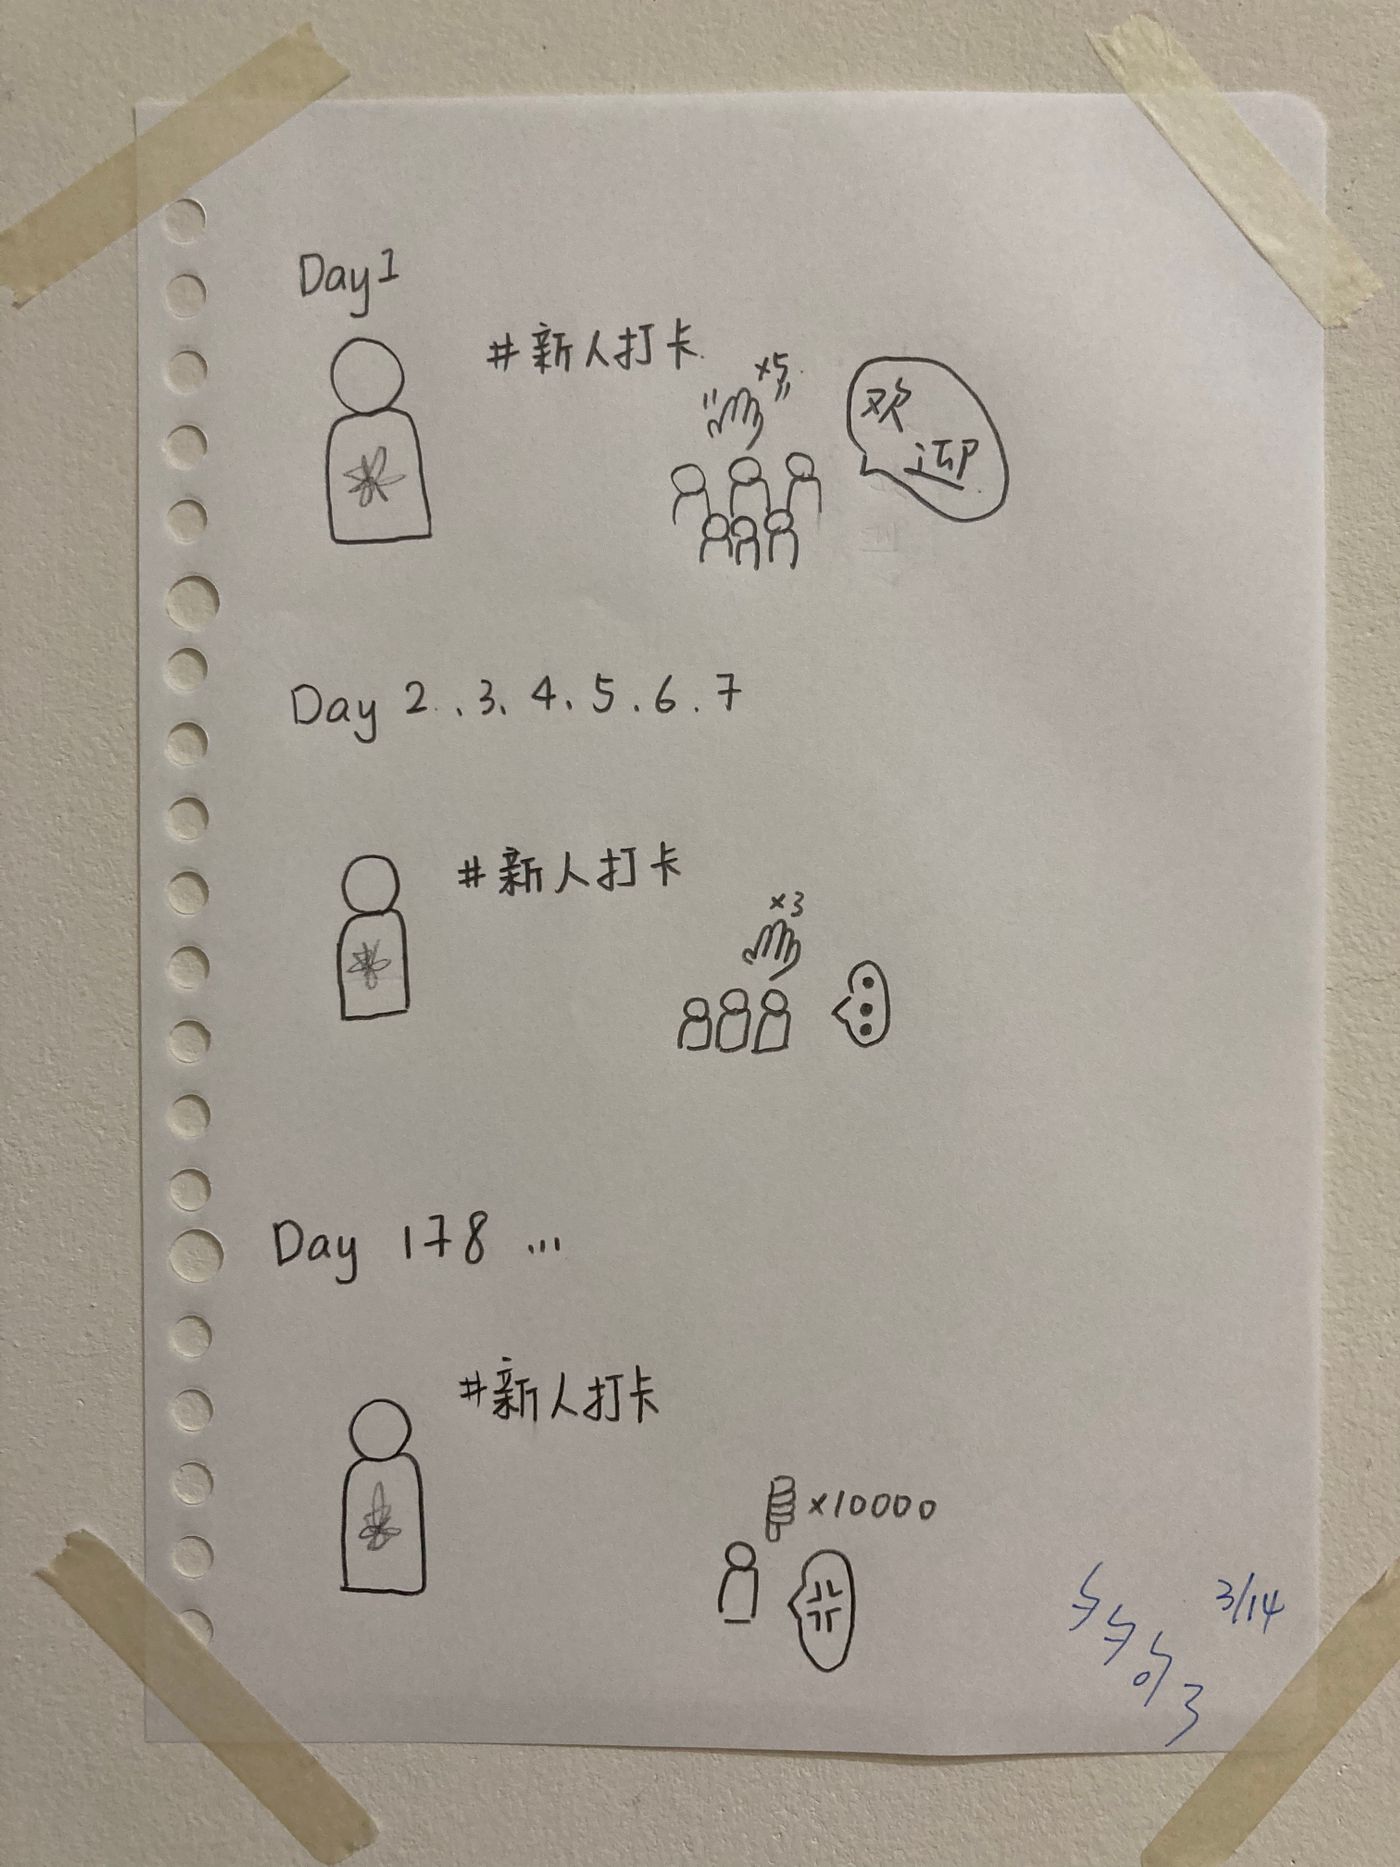 Day 1
#新人打卡
×5
欢
迎
Day 2、3、4、5、6、7
#新人打卡
×3
Day 178 ...
#新人打卡
×10000
3/14